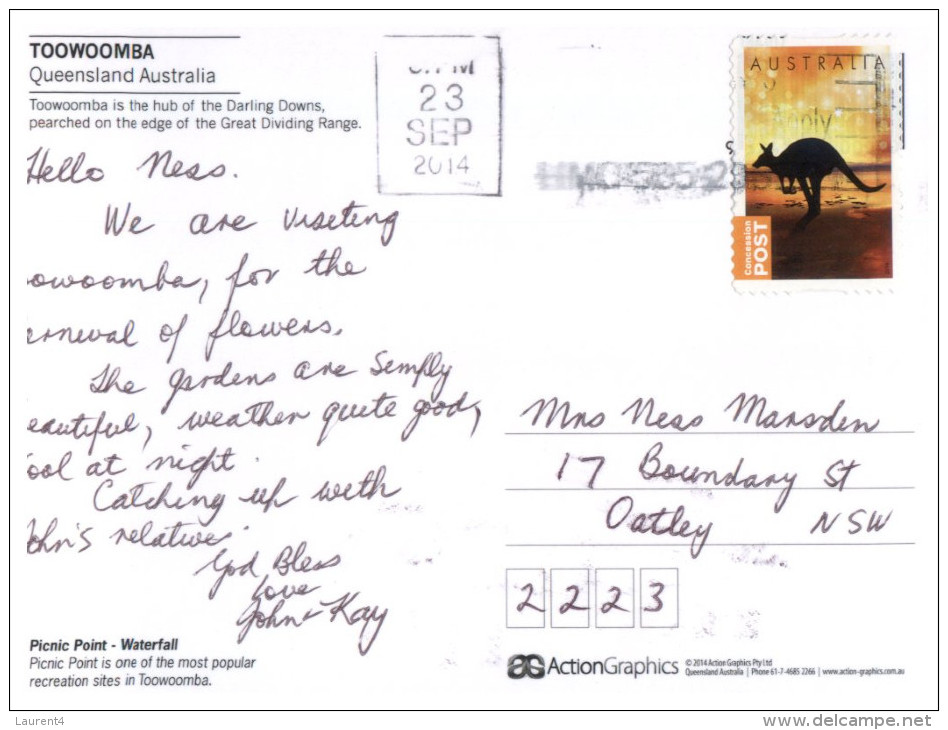 TOOWOOMBA
Queensland Australia
Toowoomba is the hub of the Darling Downs,
pearched on the edge of the Great Dividing Range.
PM
23
SEP
2014
AUSTRALIA
Concession
POST
Hello Ness.
We are visiting
owoomba, for the
arneval of flowers.
The gardens are Semply
eautiful, weather quite good,
ool at night.
Catching up with
ohn's relatives.
God Bless
love
John & Kay
Mrs Ness Marsden
17 Boundary St
Oatley NSW
2223
Picnic Point - Waterfall
Picnic Point is one of the most popular
recreation sites in Toowoomba.
AG ActionGraphics
© 2014 Action Graphics Pty Ltd
Queensland Australia | Phone 61-7-4685 2266 | www.action-graphics.com.au
Laurent4
www.delcampe.net